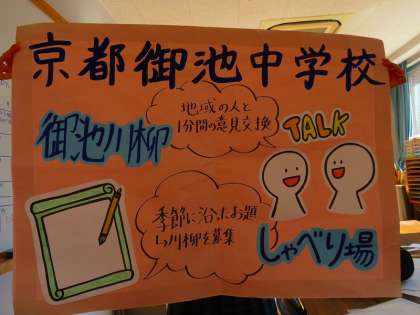 京都御池中学校
地域の人と
1分間の意見交換
御池川柳
TALK
季節に沿ったお題
↳川柳を募集
しゃべり場